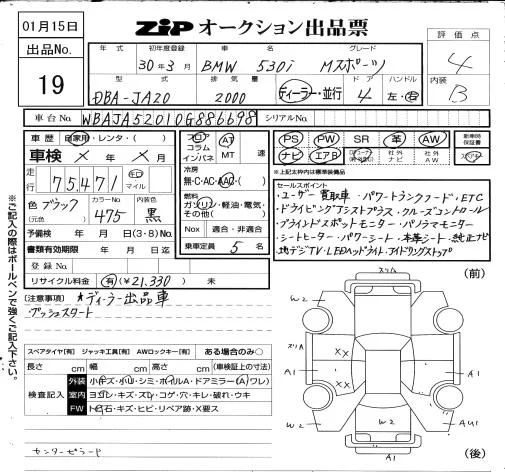 01月15日
ZIP オークション出品票
出品No.
19
評価点
4
内装
B
年式 初年度登録 車名 グレード
30年3月 BMW 530i Mスポーツ
型式 排気量 ドア ハンドル
DBA-JA20 2000 ディーラー・並行 4 左・右
車台No. WBAJA52010G886698 シリアルNo.
車歴 自家用・レンタ・( )
車検 × 年 × 月
走行 75,471 キロ マイル
色 ブラック (元色) カラーNo. 475 内装色 黒
予備検 年 月 日(3・8)No.
書類有効期限 年 月 日迄
登録No.
リサイクル料金 有(¥21,330) 未
フロア コラム インパネ
AT MT 速
冷房
無・C・AC・AAC・( )
燃料
ガソリン・軽油・電気・その他( )
Nox 適合・非適合
乗車定員 5 名
PS PW SR 革 AW
ナビ エアB 社外ナビ 社外AW
新車時保証書
スペアキー
*上記太枠内は標準装備品
セールスポイント
・ユーザー買取車・パワートランクフード・ETC
・ドライビングアシストプラス・クルーズコントロール
・ブラインドスポットモニター・パノラマモニター
・シートヒーター・パワーシート・本革シート・純正ナビ
・地デジTV・LEDヘッドライト・アイドリングストップ
(注意事項) ★ディーラー出品車
プッシュスタート
※ご記入の際はボールペンで強くご記入下さい。
スペアタイヤ[有] ジャッキ工具[有] AWロックキー[有] ある場合のみ○
長さ cm 幅 cm 高さ cm (車検証上の寸法)
検査記入
外装 小キズ・小凹・シミ・ホイルA・ドアミラー(A)ワレ)
室内 ヨゴレ・キズ・スレ・コゲ・穴・キレ・破れ・ウキ
FW トビ石・キズ・ヒビ・リペア跡・X要ス
センターピラード
(前)
スリA
W2
W2
スリA
A1
××
××
A1
A1
W2
AU1
A1
(後)